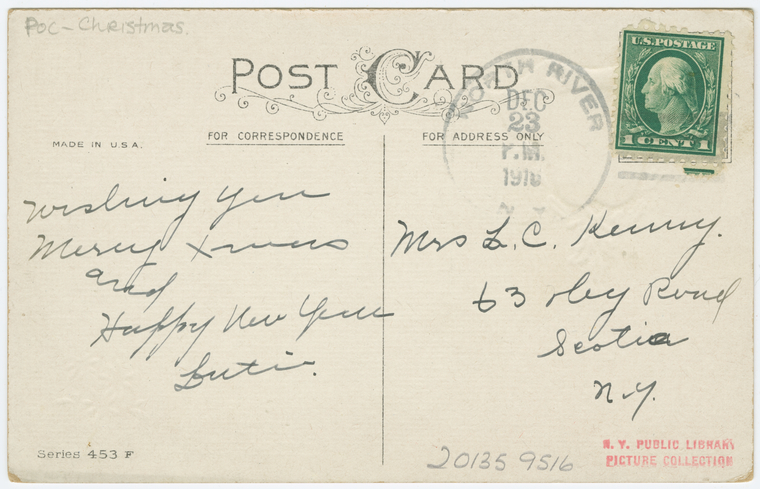 Poc - Christmas.
POST CARD
U.S. POSTAGE
1 CENT 1
NORTH RIVER
DEC
23
P.M.
1916
N.Y.
FOR CORRESPONDENCE
FOR ADDRESS ONLY
MADE IN U.S.A.
Wishing you
Merry Xmas
and
Happy New Year
Mrs L. C. Kenny.
63 Road
Scotia
N.Y.
Series 453 F
20135 9516
N. Y. PUBLIC LIBRARY
PICTURE COLLECTION